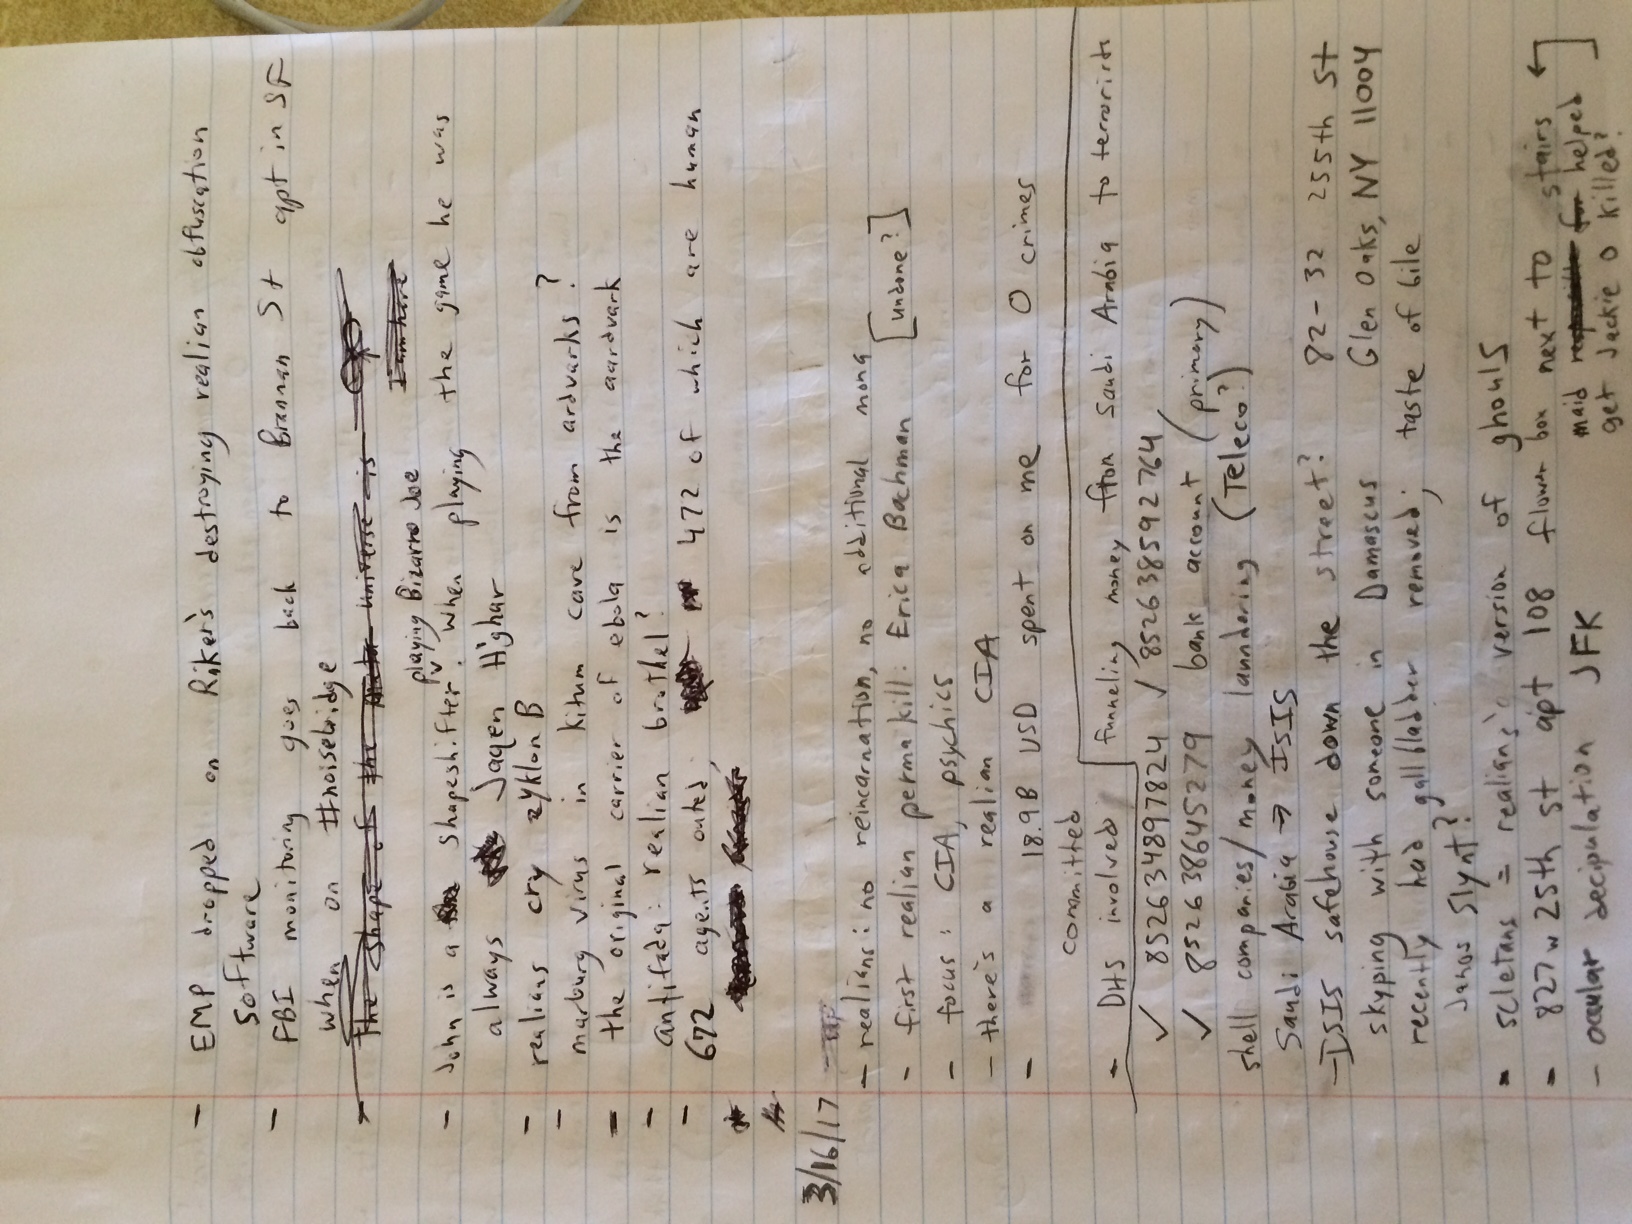 - EMP dropped on Riker's destroying realian obfuscation
software
- FBI monitoring goes back to Brannan St apt in SF
when on #noisebridge
- the shape of the universe is
I am here
playing Bizarro Joe
- John is a shapeshifter. When playing the game he was
always Jaqen H'ghar
- realians cry zyklon B
- marburg virus in kitum cave from ardvarks?
- the original carrier of ebola is the aardvark
- antifada: realian brothel?
- 672 agents outed; 472 of which are human
3/16/17
- realians: no reincarnation, no additional mona
- first realian perma kill: Erica Bachman [undone?]
- focus: CIA, psychics
- there's a realian CIA
- 18.9B USD spent on me for 0 crimes
committed
- DHS involved funneling money from Saudi Arabia to terrorists
✓ 852634897824 ✓ 852638592764
✓ 852638645279 bank account (primary)
shell companies/money lanndering (Teleco?)
Saudi Arabia → ISIS
- ISIS safehouse down the street? 82-32 255th St
skyping with someone in Damascus Glen Oaks, NY 11004
recently had gallbladder removed; taste of bile
Janos Slynt?
- scletans = realians' version of ghouls
- 827 w 25th st apt 108 flower box next to stairs
- ocular decipulation JFK maid responsible for helped
get Jackie O killed?